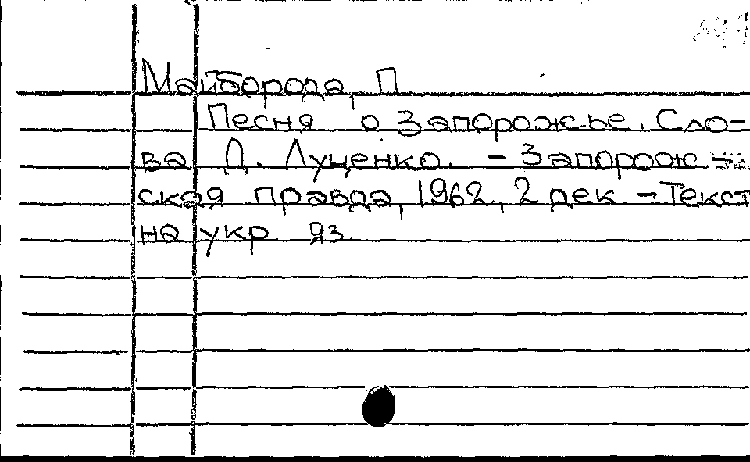 Майборода, П.
Песня о Запорожье. Сло-
ва Д. Луценко. – Запорож-
ская правда, 1962, 2 дек. – Текст
на укр. яз.